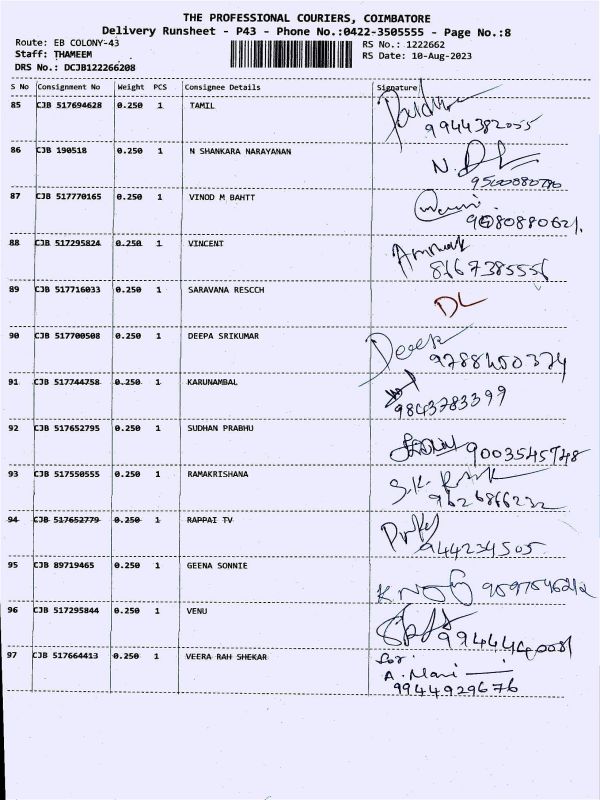 THE PROFESSIONAL COURIERS, COIMBATORE
Delivery Runsheet - P43 - Phone No.:0422-3505555 - Page No.:8
Route: EB COLONY-43
RS No.: 1222662
Staff: THAMEEM
RS Date: 10-Aug-2023
DRS No.: DCJB122266208
S No Consignment No Weight PCS Consignee Details Signature
85 CJB 517694628 0.250 1 TAMIL
9944382055
86 CJB 190518 0.250 1 N SHANKARA NARAYANAN
9500080780
87 CJB 517770165 0.250 1 VINOD M BAHTT
9080880621.
88 CJB 517295824 0.250 1 VINCENT
8167385556
89 CJB 517716033 0.250 1 SARAVANA RESCCH
DL
90 CJB 517700508 0.250 1 DEEPA SRIKUMAR
Deepa
9788450374
91 CJB 517744758 0.250 1 KARUNAMBAL
9843783399
92 CJB 517652795 0.250 1 SUDHAN PRABHU
9003545748
93 CJB 517550555 0.250 1 RAMAKRISHANA
9626866232
94 CJB 517652779 0.250 1 RAPPAI TV
944234505
95 CJB 89719465 0.250 1 GEENA SONNIE
96 CJB 517295844 0.250 1 VENU
97 CJB 517664413 0.250 1 VEERA RAH SHEKAR
for
A. Mani
9944929676